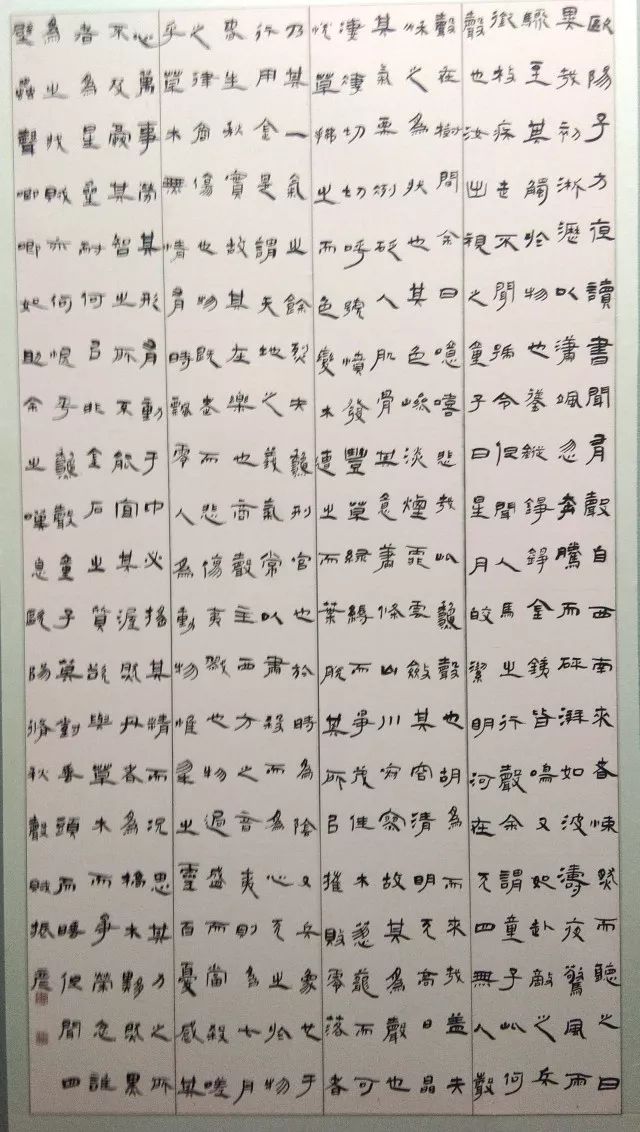 歐陽子方夜讀書聞有聲自西南來者悚然而聽之曰
異哉初淅瀝以瀟颯忽奔騰而砰湃如波濤夜驚風雨
驟至其觸於物也鏦鏦錚錚金鐵皆鳴又如赴敵之兵
銜枚疾走不聞號令但聞人馬之行聲余謂童子此何
聲也汝出視之童子曰星月皎潔明河在天四無人聲
聲在樹間余曰噫嘻悲哉此秋聲也胡為而來哉蓋夫
秋之為狀也其色慘淡煙霏雲斂其容清明天高日晶
其氣栗冽砭人肌骨其意蕭條山川寂寥故其為聲也
淒淒切切呼號憤發豐草綠縟而爭茂佳木蔥蘢而可
悅草拂之而色變木遭之而葉脫其所以摧敗零落者
乃其一氣之餘烈夫秋刑官也於時為陰又兵象也于
行用金是謂天地之義氣常以肅殺而為心天之於物
春生秋實故其在樂也商聲主西方之音夷則為七月
之律商傷也物既老而悲傷夷戮也物過盛而當殺嗟
乎草木無情有時飄零人為動物惟物之靈百憂感其
心萬事勞其形有動于中必搖其精而況思其力之所
不及憂其智之所不能宜其渥然丹者為槁木黟然黑
者為星星奈何以非金石之質欲與草木而爭榮念誰
為之戕賊亦何恨乎秋聲童子莫對垂頭而睡但聞四
壁蟲聲唧唧如助余之嘆息歐陽脩秋聲賦振